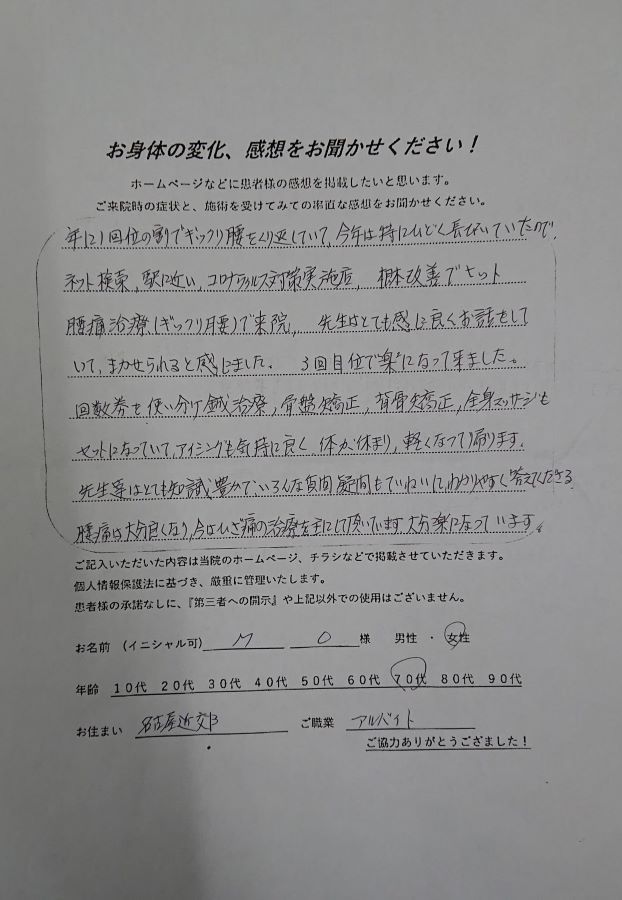 お身体の変化、感想をお聞かせください！
ホームページなどに患者様の感想を掲載したいと思います。
ご来院時の症状と、施術を受けてみての率直な感想をお聞かせください。
年に1回位の割でギックリ腰をくり返していて、今年は特にひどく長びいていたので、
ネット検索、駅に近い、コロナウィルス対策実施店、根本改善でヒット
腰痛治療（ギックリ腰）で来院、先生はとても感じ良くお話をして
いて、まかせられると感じました。3回目位で楽になって来ました。
回数券を使い分け鍼治療、骨盤矯正、背骨矯正、全身マッサージも
セットになっていて、アイシングも気持に良く体が休まり、軽くなって帰ります。
先生等はとても知識豊かで、いろんな質問疑問もていねいに、わかりやすく答えてくださる
腰痛は大分良くなり、今はひざ痛の治療を主にして頂いています。大分楽になっています。
ご記入いただいた内容は当院のホームページ、チラシなどで掲載させていただきます。
個人情報保護法に基づき、厳重に管理いたします。
患者様の承諾なしに、『第三者への開示』や上記以外での使用はございません。
お名前 （イニシャル可） M O 様 男性 ・ 女性
年齢 10代 20代 30代 40代 50代 60代 70代 80代 90代
お住まい 名古屋近郊 ご職業 アルバイト
ご協力ありがとうござました！